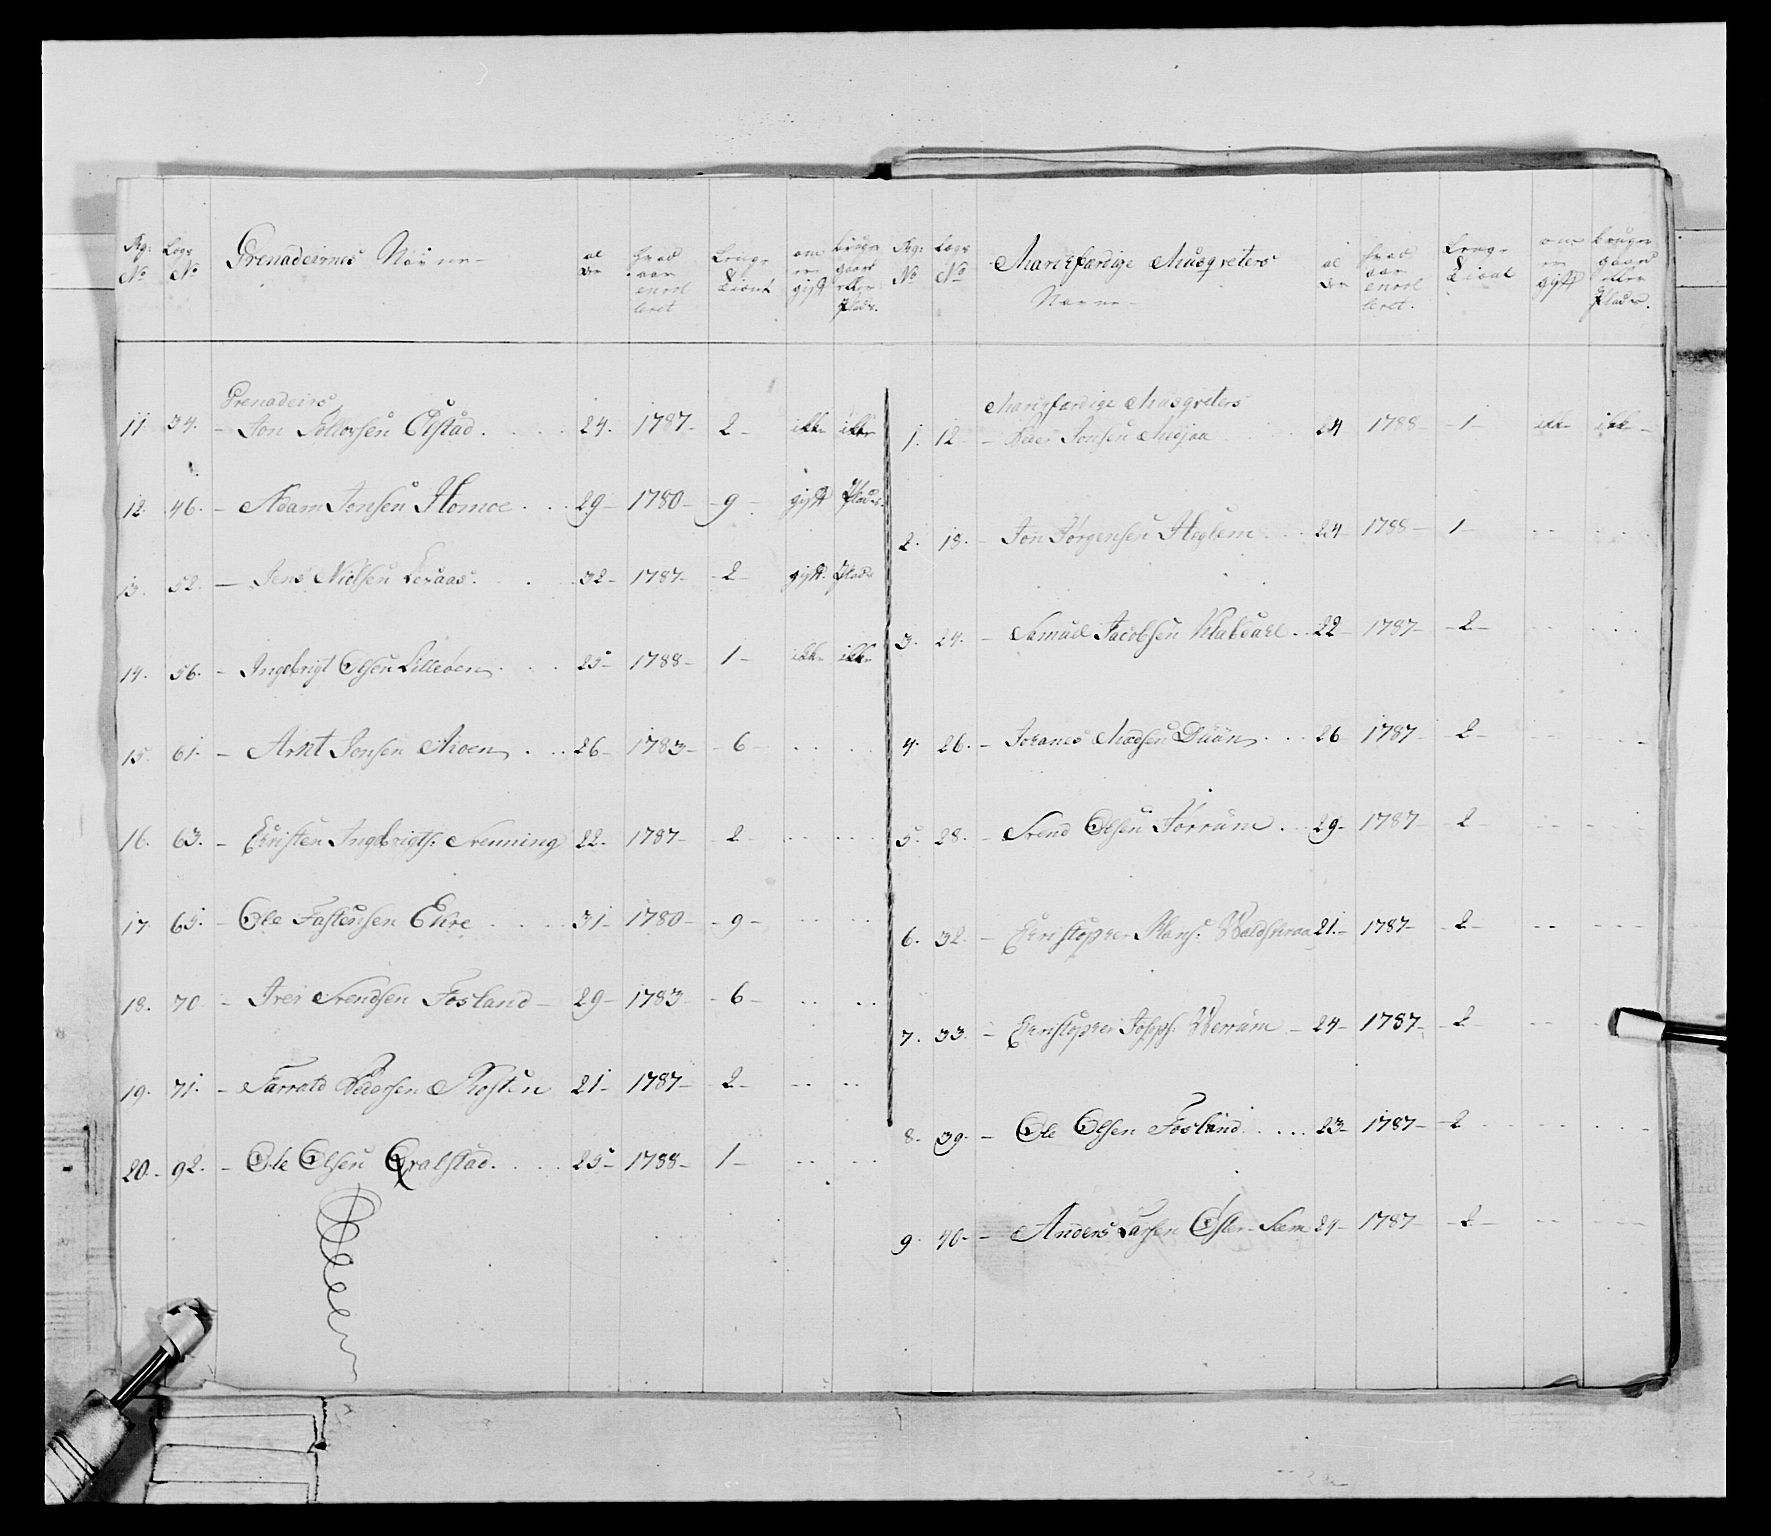 Rg: No Lægs No Grenadeirnes Navne al der hvad aar enrol leret Længe tient om er gift bruger gaard eller plads.
Grenadeirs
11 34. - Jon Tollovsen Ølstad. 24. 1787- 2- ikke ikke
12. 46. - Adam Jonsen Homoe 29- 1780- -9- gift Plads
13. 52. - Jens Nielsen Leraas. 32- 1787- -2- gift. Plads
14. 56. - Ingebrigt Olsen Lilleøen 25- 1788- 1- ikke ikke
15. 61. - Arnt Jonsen Moen 26- 1783- -6
16. 63. - Christen Ingebrigts: Svenning 22. 1787- -2-
17. 65. - Ole Fastensen Ekre 31- 1780- -9-
18. 70 - Iver Svendsen Fosland- 29- 1783 -6-
19. 71. - Tarrald Pedersen 21- 1787- 2-
20. 92. - Ole Olsen Qvalstad. 25- 1788- 1-
Rg: No Lægs No Marchfærdige Musqveters Navne- al der hvad aar enrol leret. Længe tient om er gift bruger gaard eller Plads.
Marchfærdige Musqveters
1. 12 - Jonsen 24 1788- -1- ikke ikke-
2. 18. - Jon Jørgensen Heglem 24 1788- 1-
3. 24. - Samuel Jacobsen 22- 1787- -2-
4. 26. - Johanes Madsen Duun 26- 1787- -2-
5. 28. - Svend Olsen Jørrum 29- 1787- -2
6. 32. - Christopher Hans: 21.- 1787- -2-
7. 33. - Christopher Joseph: Werrum - 24- 1787- -2-
8. 39. - Ole Olsen Fosland 23- 1787- -2
9. 40.- - Anders Larsen Øster-Sem 24- 1787- -2-